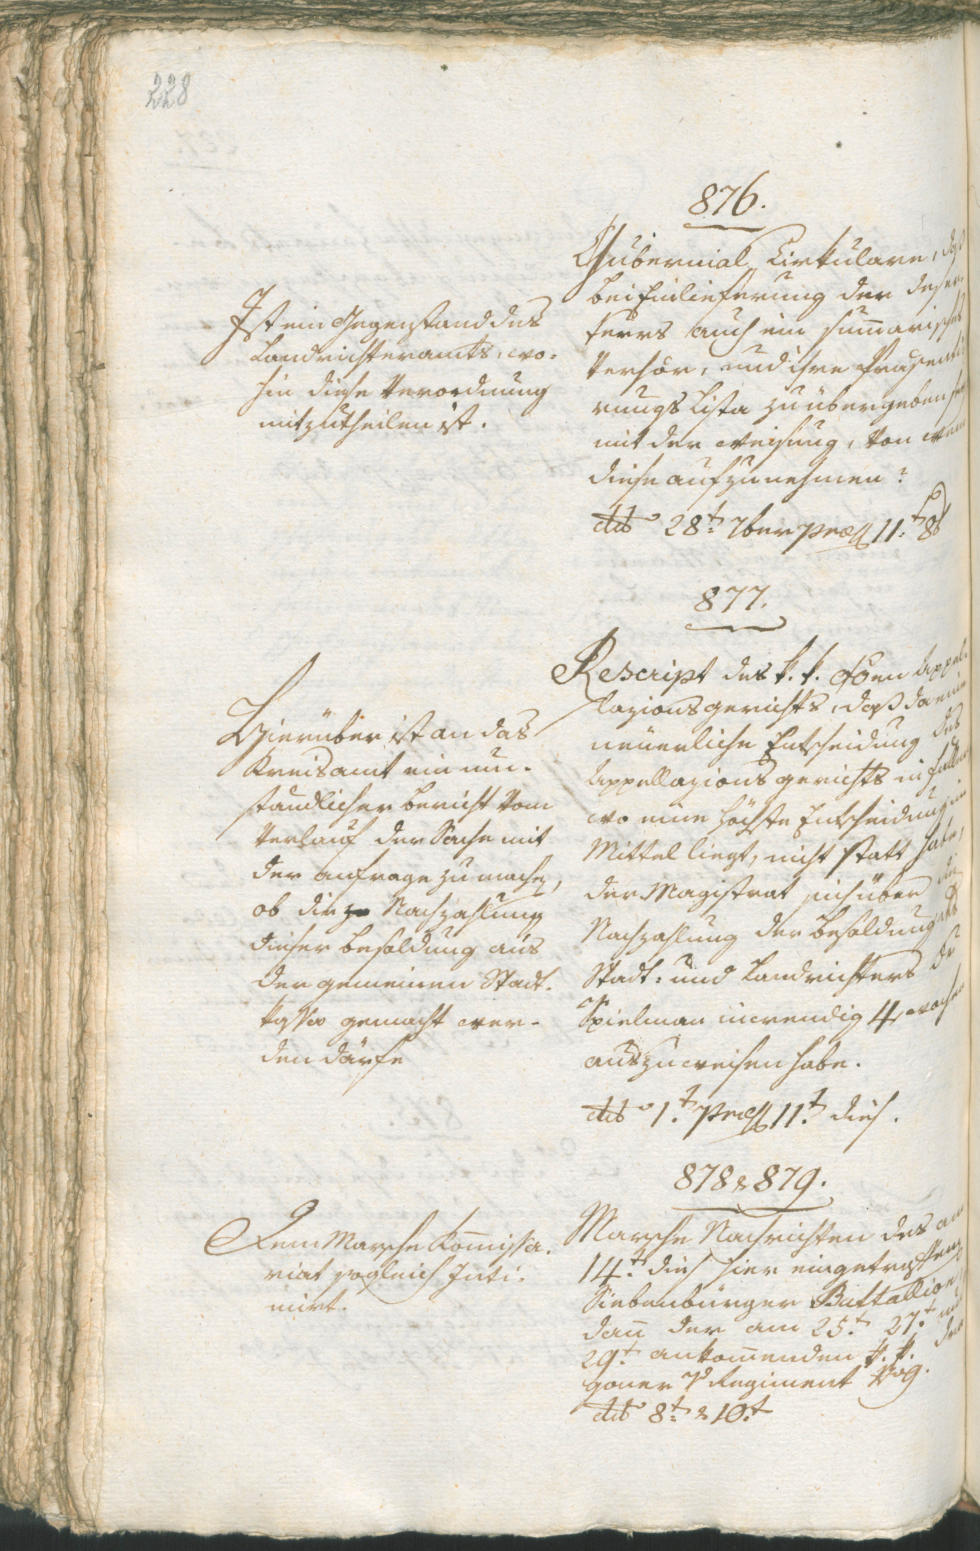 228
876.
Gubernial Cirkulare, daß
bei Einlieferung der Deser-
teurs auch ein sum̄arisches
Verhör, und ihre Präsenti-
rungs Lista zu übergeben sey
mit der Weisung, von wem
diese aufzunehmen?
ddto 28t. 7ber praes. 11.t 8b
Ist ein Gegenstand des
Landrichteramts, wo-
hin diese Verordnung
mitzutheilen ist.
877.
Rescript des k. k. Appel-
lazionsgerichts, daß da eine
neüerliche Entscheidung des
Appellazionsgerichts in Fällen
wo eine höchste Entscheidung im
Mittel liegt, nicht statt habe,
der Magistrat sich über die
Nachzahlung der Besoldung des
Stadt- und Landrichters Dr
Spielman inwendig 4 Wochen
auszuweisen habe.
ddto 1.t praes. 11.t dies.
Hierüber ist an das
Kreisamt ein um-
ständlicher Bericht vom
Verlauf der Sache mit
der Anfrage zu machen,
ob die Nachzahlung
dieser Besoldung aus
der gemeinen Stadt-
kassa gemacht wer-
den därfe
878 & 879.
Marsche Nachrichten des am
14.t dies hier eingetroffenen
Siebenbürger Battallion,
dan̄ der am 25.t 27.t und
29.t ankom̄enden k. k. Dra-
goner Regiment
ddto 8t. & 10.t
Dem Marsche Kom̄issa-
riat sogleich Inti-
mirt.